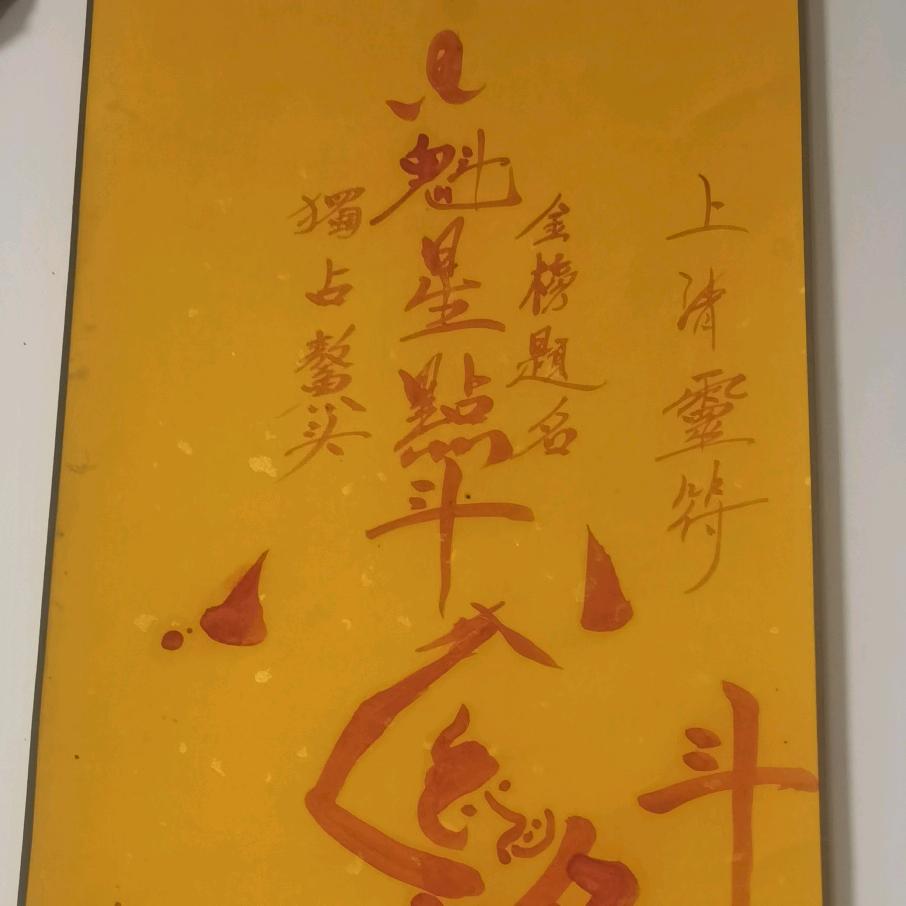 上清靈符
金榜題名
魁星點斗
獨占鰲头
斗